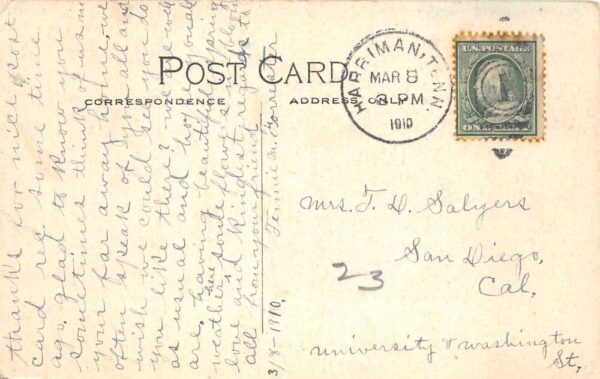 POST CARD
CORRESPONDENCE
ADDRESS ONLY
HARRIMAN, TENN.
MAR 8
3 PM
1910
U.S. POSTAGE
Mrs. T. D. Salyers
San Diego,
Cal,
23
University & Washington
St,
Thanks for nice post
card rec. some time
ago. glad to know you
sometimes think of us in
your far away home. we
often speak of you all and
wish we could see you do
you like there? we are well
as usual and hope you all
are, having beautiful spring
weather here some flowers
love and kindest regards to
all from your friend
Fannie M. Forrester
3/8-1910.